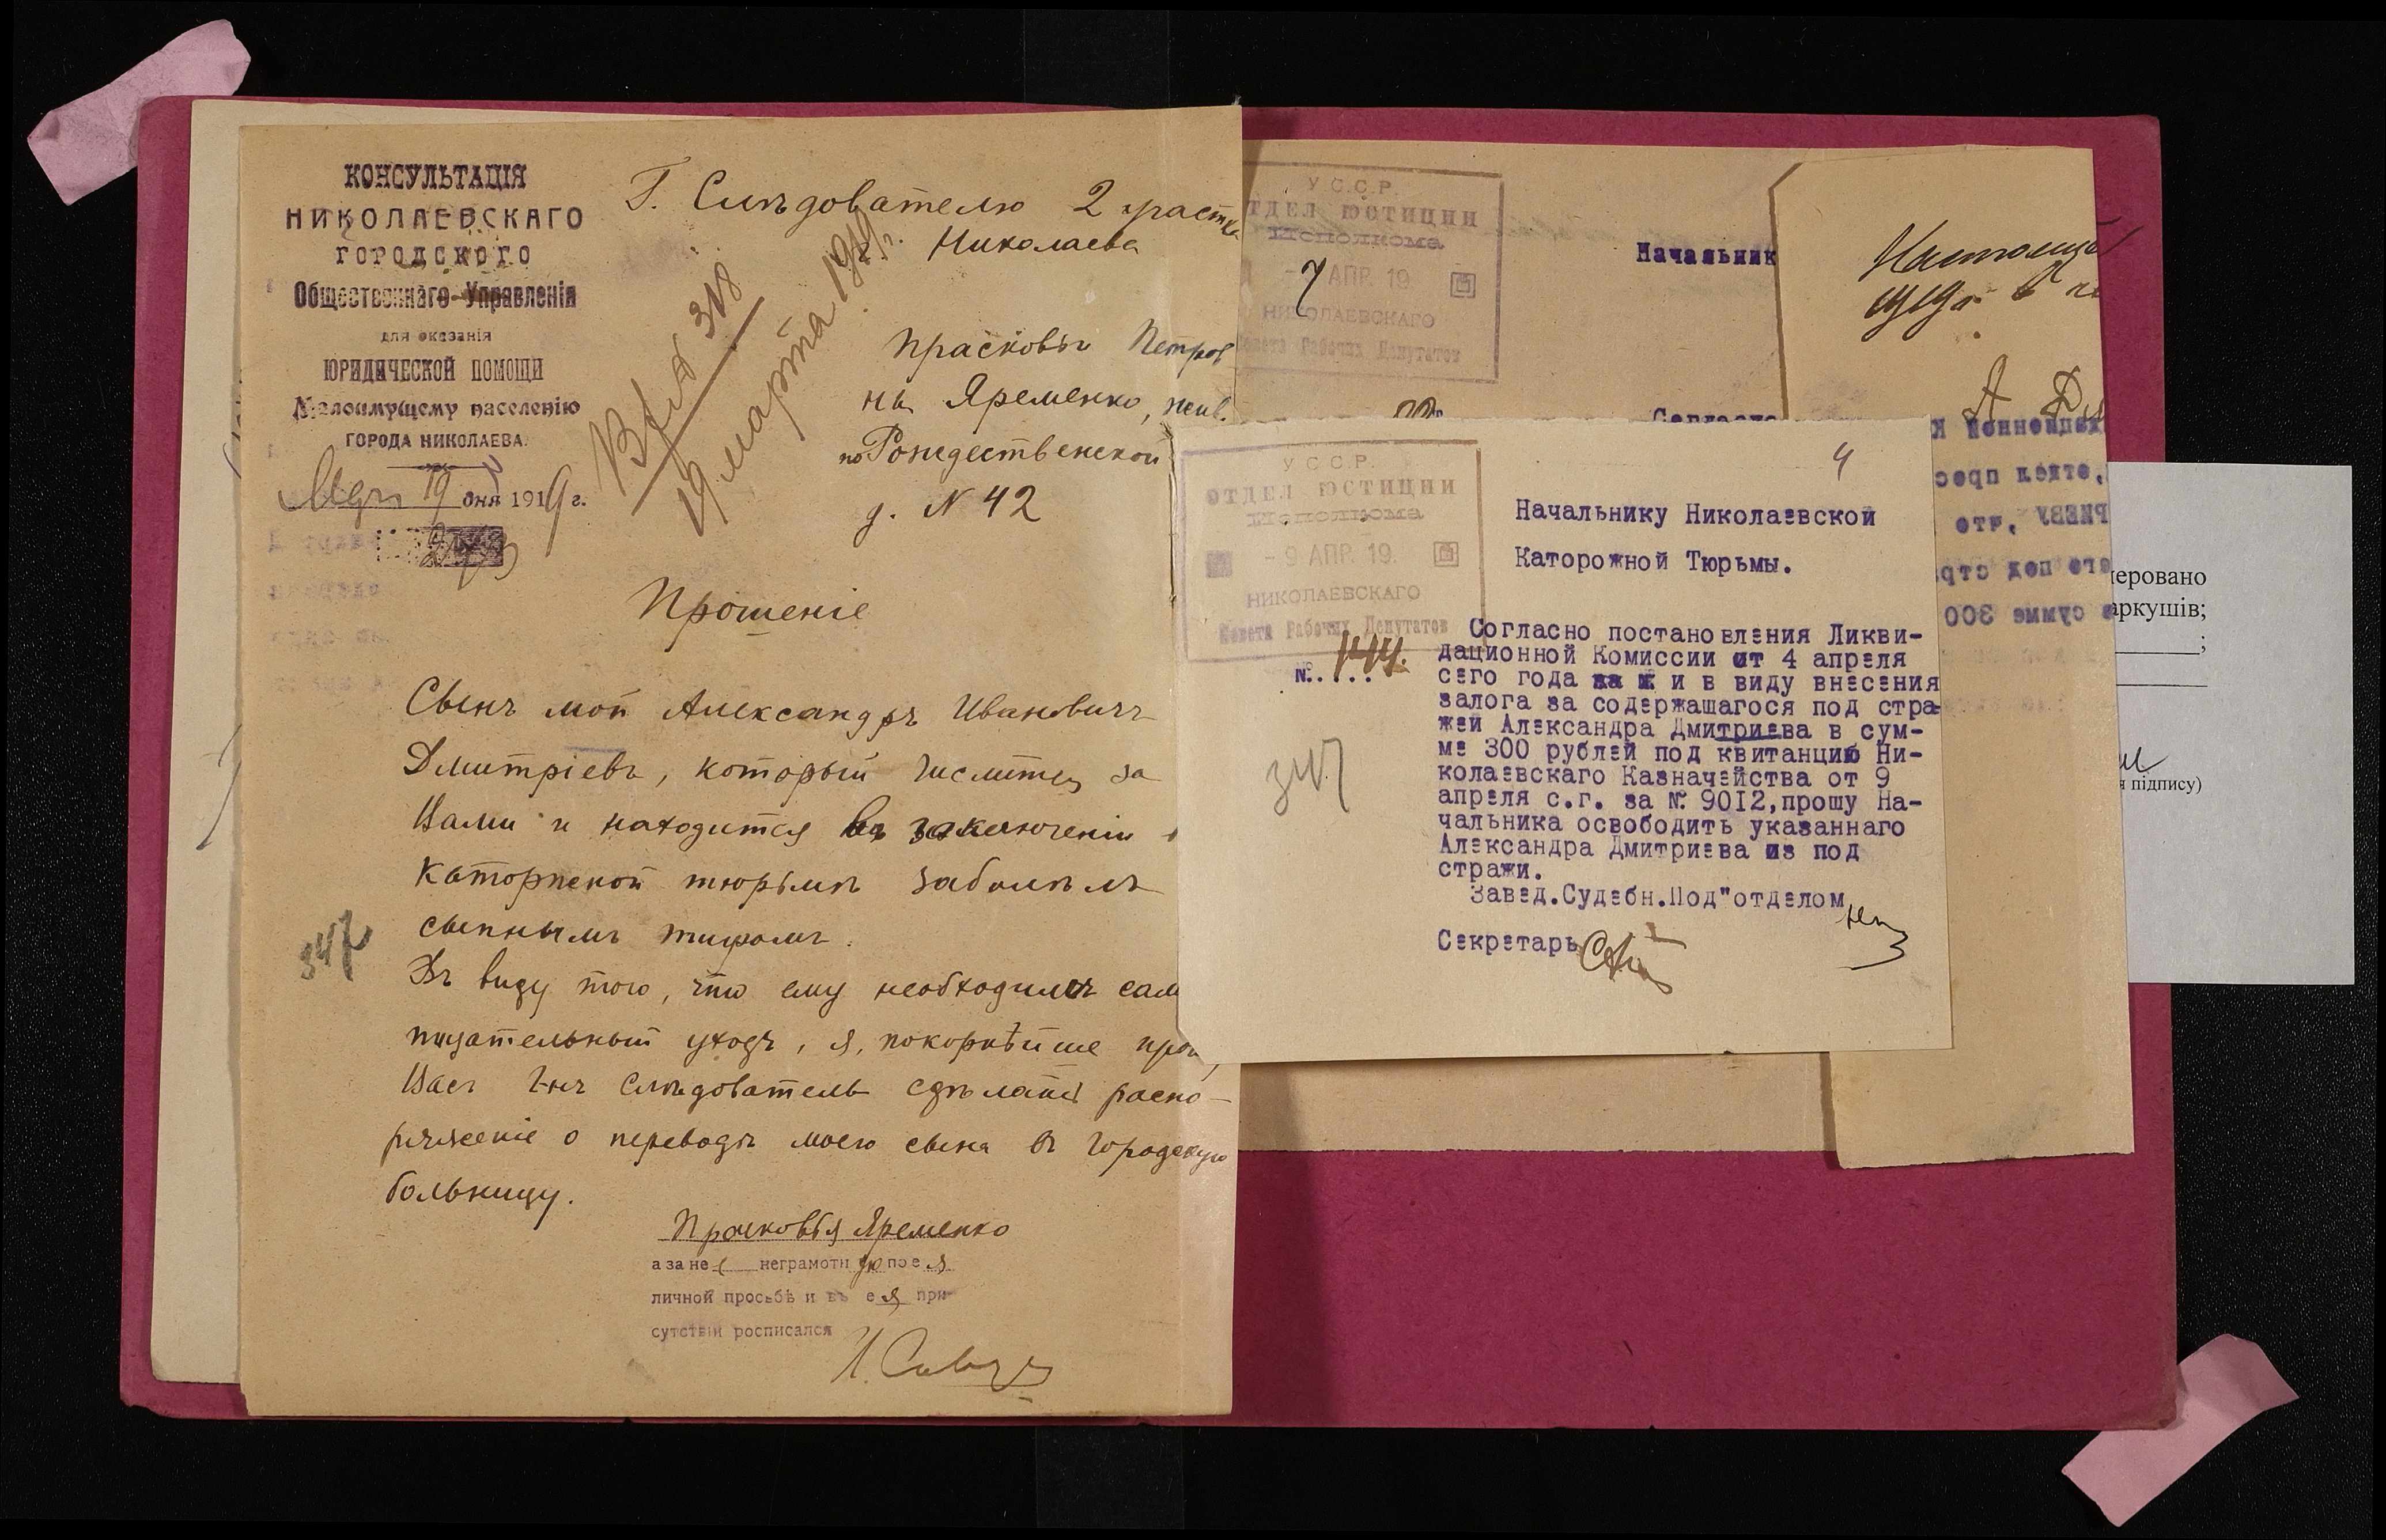 КОНСУЛЬТАЦІЯ
НИКОЛАЕВСКАГО
ГОРОДСКОГО
Общественнаго Управленія
для оказанія
ЮРИДИЧЕСКОЙ ПОМОЩИ
Малоимущему населенію
ГОРОДА НИКОЛАЕВА.
19 дня 1919 г.
Г. Слѣдователю 2 участка
Николаева
19 марта 1919 г.
Прасковьи Петров
ны Яременко, жив.
по Рождественской
д. № 42
Прошеніе
Сынъ мой Александръ Ивановичъ
Дмитріевъ, который числится за
Вами и находится въ заключеніи
Каторжной тюрьмѣ заболѣлъ
сыпнымъ тифомъ.
347
Въ виду того, что ему необходимъ сам
тщательный уходъ, я, покорнѣйше
Васъ Г-нъ Слѣдователь сдѣлать распо-
ряженіе о переводѣ моего сына въ Городскую
больницу.
Прасковья Яременко
а за не неграмотн ую по е я
личной просьбѣ и въ ея при
сутствіи росписался
У.С.С.Р.
ТДЕЛ ЮСТИЦИИ
Исполкома
7 АПР. 19
НИКОЛАЕВСКАГО
Совета Рабочих Депутатов
Начальник
Согласно
У.С.С.Р.
ОТДЕЛ ЮСТИЦИИ
Исполкома
- 9 АПР. 19.
НИКОЛАЕВСКАГО
Совета Рабочих Депутатов
№.....
347
4
Начальнику Николаевской
Каторожной Тюрьмы.
Согласно постановления Ликви-
дационной Комиссии от 4 апреля
сего года и в виду внесения
залога за содержашагося под стра-
жей Александра Дмитриева в сум-
ме 300 рублей под квитанцию Ни-
колаевского Казначейства от 9
апреля с.г. за №. 9012,прошу На-
чальника освободить указаннаго
Александра Дмитриева из под
стражи.
Завед.Судебн.Под"отделом
Секретарь
еровано
аркушів;
;
підпису)